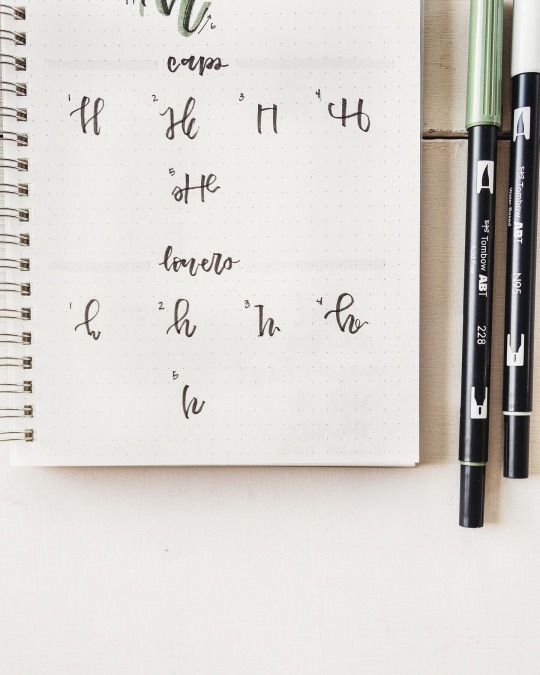 6
caps
1 H 2 H 3 H 4 H
5 H
lowers
1 h 2 h 3 h 4 h
5 h
Tombow ABT
228
Tombow ABT
Water-Based
N95